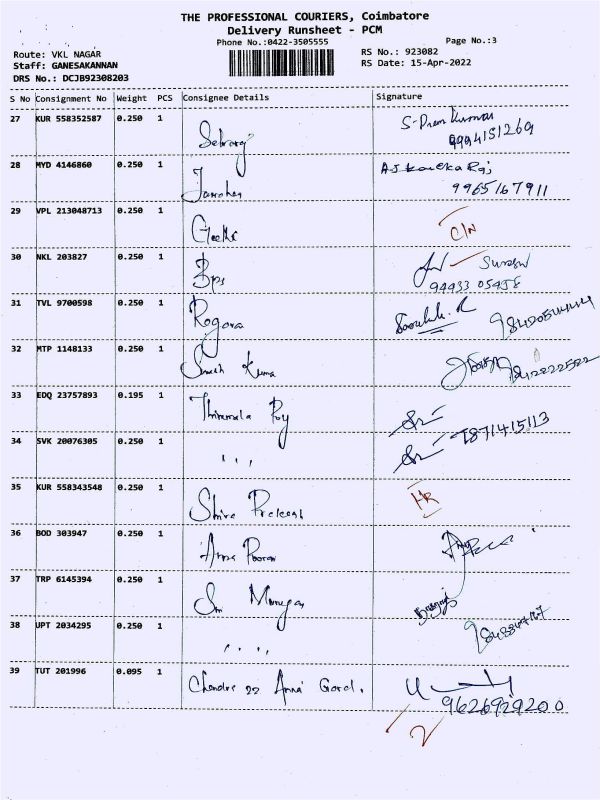 THE PROFESSIONAL COURIERS, Coimbatore
Delivery Runsheet - PCM
Phone No.:0422-3505555
Page No.:3
Route: VKL NAGAR
RS No.: 923082
Staff: GANESAKANNAN
RS Date: 15-Apr-2022
DRS No.: DCJB92308203
S No Consignment No Weight PCS Consignee Details Signature
27 KUR 558352587 0.250 1 Selvaraj S-Prem Kumar
9994151269
28 MYD 4146860 0.250 1
9965167911
29 VPL 213048713 0.250 1 Geetha C/N
30 NKL 203827 0.250 1 Bps Suresh
94433 05458
31 TVL 9700598 0.250 1
32 MTP 1148133 0.250 1 Suresh Kumar
33 EDQ 23757893 0.195 1 Thirumala Roy
7871415113
34 SVK 20076305 0.250 1 ' ' ,
35 KUR 558343548 0.250 1 Shiva Prakash HR
36 BOD 303947 0.250 1
37 TRP 6145394 0.250 1 Sri Murugan
38 UPT 2034295 0.250 1 ' ' ' '
39 TUT 201996 0.095 1
9626929200
2